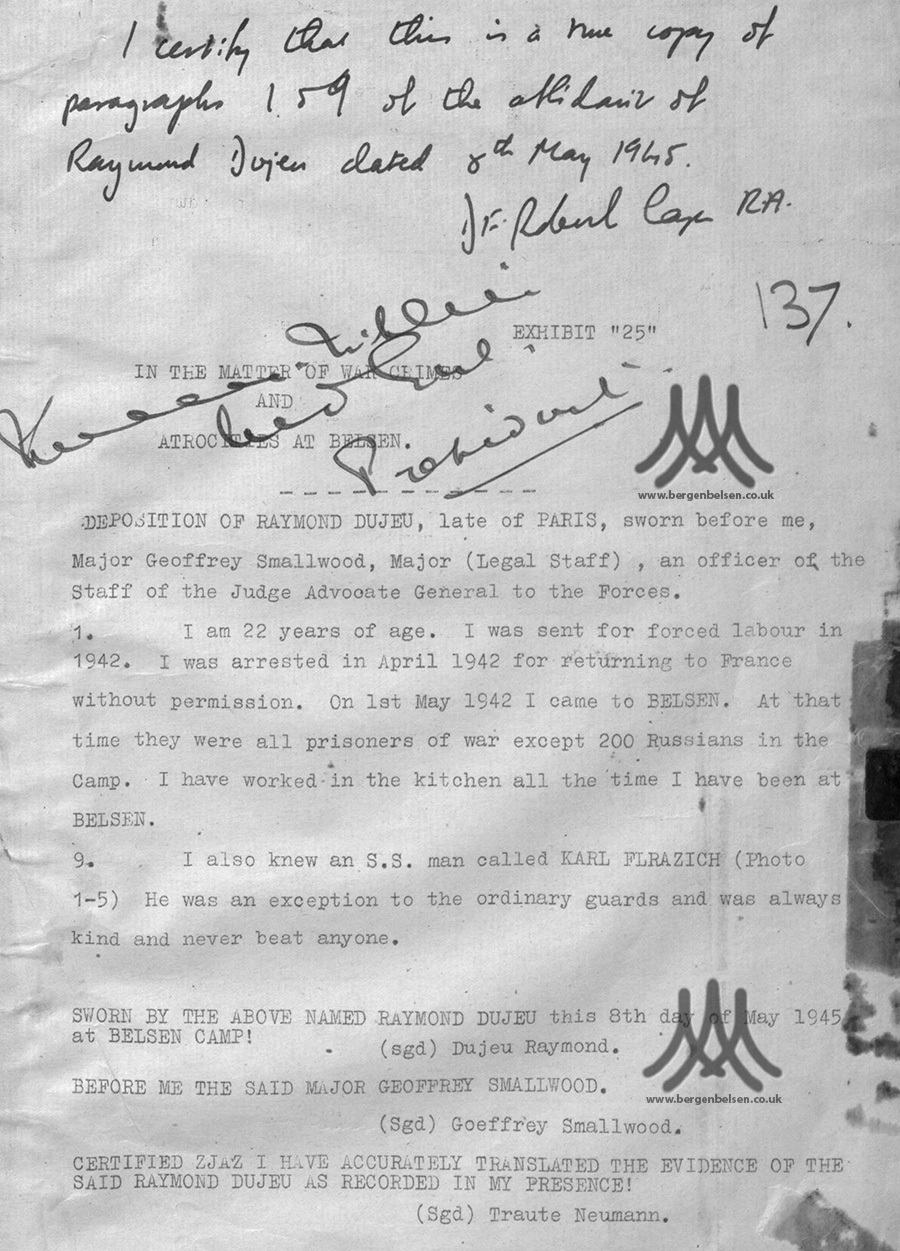 I certify that this is a true copy of
paragraphs 1 & 9 of the affidavit of
Raymond Dujeu dated 8th May 1945.
R.A.
137.
EXHIBIT "25"
IN THE MATTER OF WAR CRIMES
AND
ATROCITIES AT BELSEN.
President
www.bergenbelsen.co.uk
DEPOSITION OF RAYMOND DUJEU, late of PARIS, sworn before me,
Major Geoffrey Smallwood, Major (Legal Staff) , an officer of the
Staff of the Judge Advocate General to the Forces.
1. I am 22 years of age. I was sent for forced labour in
1942. I was arrested in April 1942 for returning to France
without permission. On 1st May 1942 I came to BELSEN. At that
time they were all prisoners of war except 200 Russians in the
Camp. I have worked in the kitchen all the time I have been at
BELSEN.
9. I also knew an S.S. man called KARL FLRAZICH (Photo
1-5) He was an exception to the ordinary guards and was always
kind and never beat anyone.
SWORN BY THE ABOVE NAMED RAYMOND DUJEU this 8th day of May 1945
at BELSEN CAMP!
(sgd) Dujeu Raymond.
BEFORE ME THE SAID MAJOR GEOFFREY SMALLWOOD.
www.bergenbelsen.co.uk
(Sgd) Goeffrey Smallwood.
CERTIFIED ZJAZ I HAVE ACCURATELY TRANSLATED THE EVIDENCE OF THE
SAID RAYMOND DUJEU AS RECORDED IN MY PRESENCE!
(Sgd) Traute Neumann.